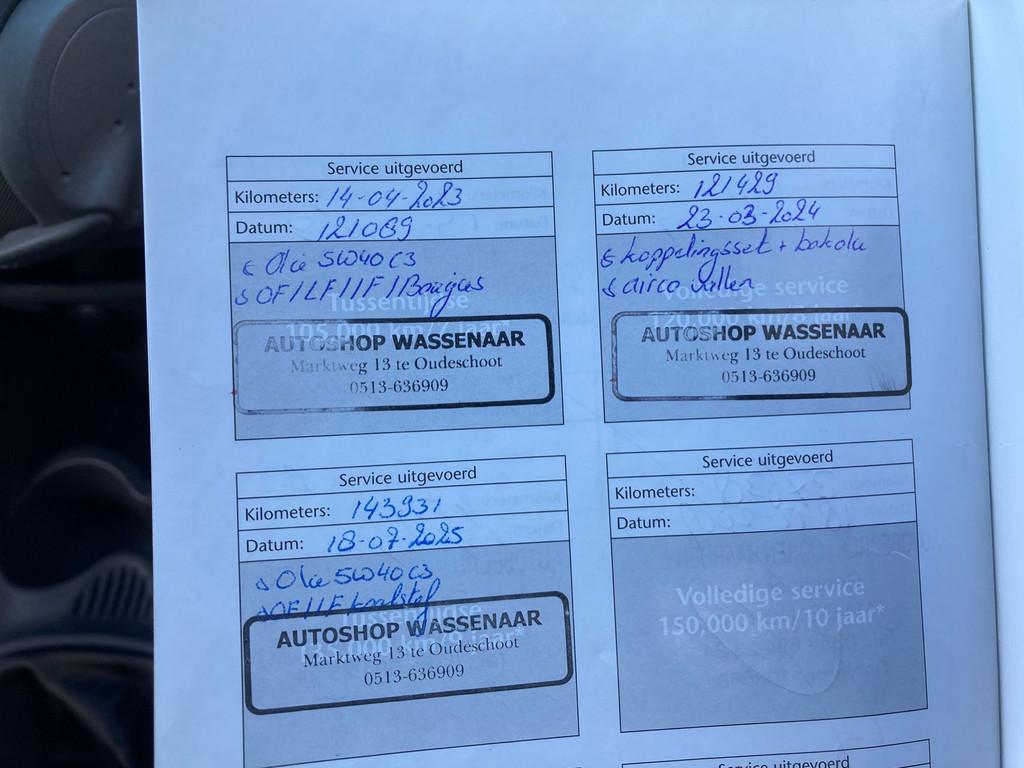 Service uitgevoerd
Kilometers: 14-04-2023
Datum: 121089
Olie 5W40 C3
OF/LF/IF/Bougies
Tussentijdse
105,000 km/7 jaar*
AUTOSHOP WASSENAAR
Marktweg 13 te Oudeschoot
0513-636909
Service uitgevoerd
Kilometers: 121429
Datum: 23-03-2024
koppelingsset + bakolie
airco vullen
Volledige service
120,000 km/8 jaar*
AUTOSHOP WASSENAAR
Marktweg 13 te Oudeschoot
0513-636909
Service uitgevoerd
Kilometers: 143931
Datum: 18-07-2025
Olie 5W40 C3
OF/IF
jaar*
AUTOSHOP WASSENAAR
Marktweg 13 te Oudeschoot
0513-636909
Service uitgevoerd
Kilometers:
Datum:
Volledige service
150,000 km/10 jaar*
Service uitgevoerd